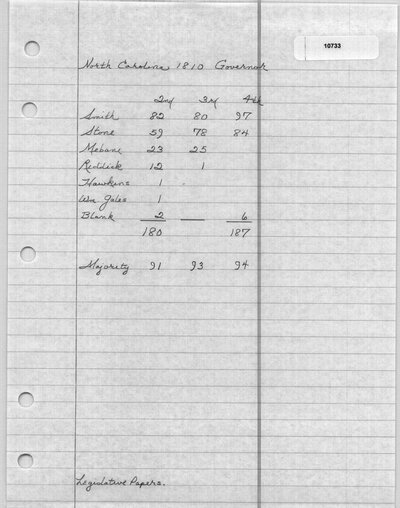 10733
North Carolina 1810 Governor
2nd 3rd 4th
Smith 82 80 97
Stone 59 78 84
Mebane 23 25
Reddick 12 1
Hawkins 1
Wm Gales 1
Blank 2 6
180 187
Majority 91 93 94
Legislative Papers.